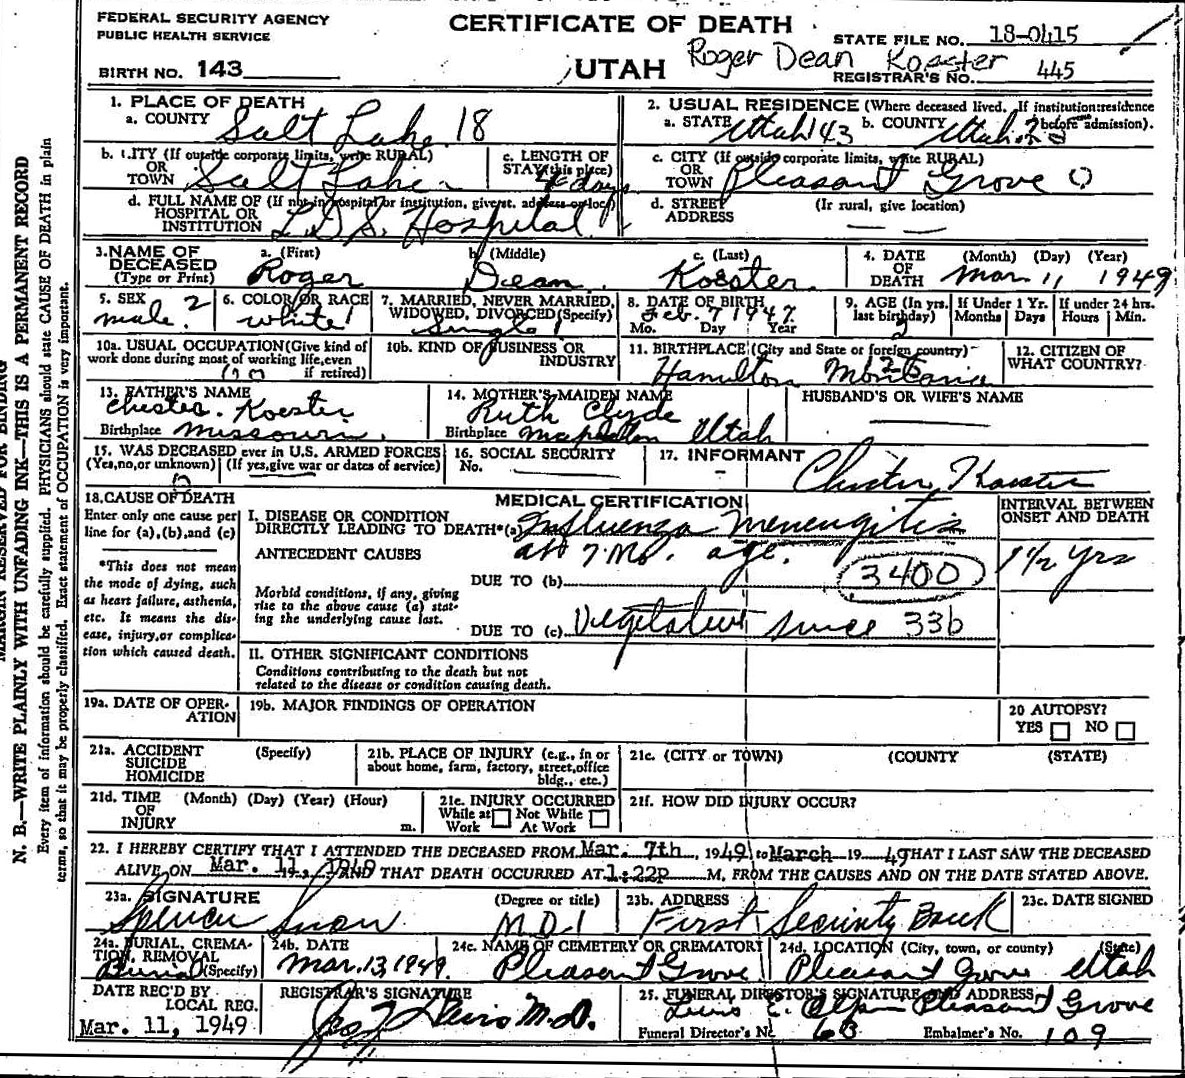 FEDERAL SECURITY AGENCY
PUBLIC HEALTH SERVICE
CERTIFICATE OF DEATH
STATE FILE NO. 18-0415
BIRTH NO. 143
UTAH
Roger Dean Koester
REGISTRAR'S NO. 445
1. PLACE OF DEATH
a. COUNTY Salt Lake 18
2. USUAL RESIDENCE (Where deceased lived. If institution: residence before admission).
a. STATE Utah 143 b. COUNTY Utah
b. CITY (If outside corporate limits, write RURAL)
OR
TOWN Salt Lake
c. LENGTH OF
STAY (this place) 4 days
c. CITY (If outside corporate limits, write RURAL)
OR
TOWN Pleasant Grove 0
d. FULL NAME OF (If not in hospital or institution, give st. address or loc)
HOSPITAL OR
INSTITUTION L.D.S. Hospital
d. STREET (Ir rural, give location)
ADDRESS — —
3. NAME OF a. (First) b. (Middle) c. (Last)
DECEASED
(Type or Print) Roger Dean Koester
4. DATE (Month) (Day) (Year)
OF
DEATH Mar 11 1949
5. SEX 2
male.
6. COLOR OR RACE
white 1
7. MARRIED, NEVER MARRIED,
WIDOWED, DIVORCED (Specify)
Single 1
8. DATE OF BIRTH
Feb. 7 1947
Mo. Day Year
9. AGE (In yrs. last birthday)
2
If Under 1 Yr.
Months Days
If under 24 hrs.
Hours Min.
10a. USUAL OCCUPATION (Give kind of
work done during most of working life, even
if retired)
10b. KIND OF BUSINESS OR
INDUSTRY
11. BIRTHPLACE (City and State or foreign country)
Hamilton Montana
12. CITIZEN OF
WHAT COUNTRY?
13. FATHER'S NAME
Chester Koester
Birthplace Missouri.
14. MOTHER'S MAIDEN NAME
Ruth Clyde
Birthplace Mapleton Utah
HUSBAND'S OR WIFE'S NAME
15. WAS DECEASED ever in U.S. ARMED FORCES
(Yes, no, or unknown) (If yes, give war or dates of service)
16. SOCIAL SECURITY
No.
17. INFORMANT
Chester Koester
18. CAUSE OF DEATH
Enter only one cause per
line for (a), (b), and (c)
*This does not mean
the mode of dying, such
as heart failure, asthenia,
etc. It means the dis-
ease, injury, or complica-
tion which caused death.
MEDICAL CERTIFICATION
I. DISEASE OR CONDITION
DIRECTLY LEADING TO DEATH* (a) Influenza Meneugitis
at 7 Mo. age.
ANTECEDENT CAUSES
DUE TO (b) 3400
Morbid conditions, if any, giving
rise to the above cause (a) stat-
ing the underlying cause last.
DUE TO (c) Vegetative since 33b
INTERVAL BETWEEN
ONSET AND DEATH
1 1/2 yrs
II. OTHER SIGNIFICANT CONDITIONS
Conditions contributing to the death but not
related to the disease or condition causing death.
19a. DATE OF OPER-
ATION
19b. MAJOR FINDINGS OF OPERATION
20 AUTOPSY?
YES NO
21a. ACCIDENT (Specify)
SUICIDE
HOMICIDE
21b. PLACE OF INJURY (e.g., in or
about home, farm, factory, street, office
bldg., etc.)
21c. (CITY or TOWN) (COUNTY) (STATE)
21d. TIME (Month) (Day) (Year) (Hour)
OF
INJURY m.
21e. INJURY OCCURRED
While at Work Not While At Work
21f. HOW DID INJURY OCCUR?
22. I HEREBY CERTIFY THAT I ATTENDED THE DECEASED FROM Mar. 7th, 1949 to March 19 49 THAT I LAST SAW THE DECEASED
ALIVE ON Mar. 11, 1949 AND THAT DEATH OCCURRED AT 1:22p M, FROM THE CAUSES AND ON THE DATE STATED ABOVE.
23a. SIGNATURE (Degree or title)
Spencer Snow M.D. 1
23b. ADDRESS
First Security Bank
23c. DATE SIGNED
24a. BURIAL, CREMA-
TION, REMOVAL
Burial (Specify)
24b. DATE
Mar. 13, 1949.
24c. NAME OF CEMETERY OR CREMATORY
Pleasant Grove
24d. LOCATION (City, town, or county) (State)
Pleasant Grove Utah
DATE REC'D BY
LOCAL REG.
Mar. 11, 1949
REGISTRAR'S SIGNATURE
M.D.
25. FUNERAL DIRECTOR'S SIGNATURE AND ADDRESS
E. Olpin Pleasant Grove
Funeral Director's No. 63 Embalmer's No. 109
MARGIN RESERVED FOR BINDING
N. B.—WRITE PLAINLY WITH UNFADING INK—THIS IS A PERMANENT RECORD
Every item of information should be carefully supplied. PHYSICIANS should state CAUSE OF DEATH in plain
terms, so that it may be properly classified. Exact statement of OCCUPATION is very important.